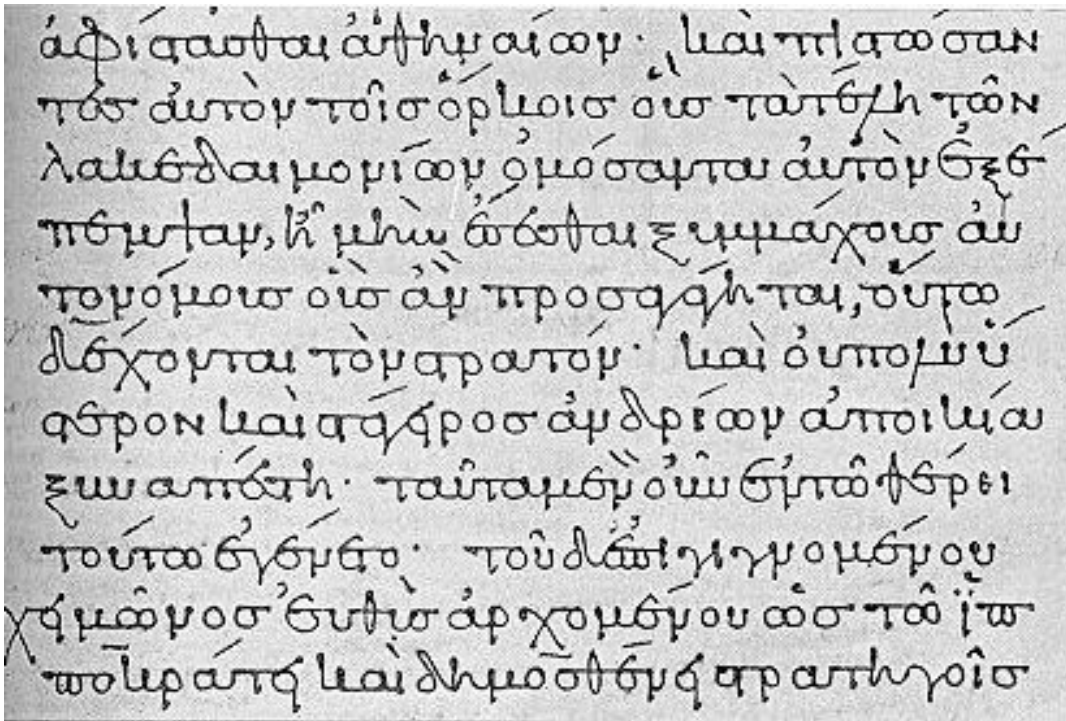 ἀφίστασθαι ἀθηναίων· καὶ πιστώσαν
τεσ ἀυτὸν τοῖσ ὅρκοισ οὓσ τὰ τέλη τῶν
λακεδαιμονίων ὀμόσαντα ἀυτὸν ἐξέ
πεμψαν, ἦ μὴν ἔσεσθαι ξυμμάχουσ ἀυ
τονόμουσ οὓσ ἂν προσαγάγηται, οὕτω
δέχονται τὸν στρατόν· καὶ ὀυ πολὺ ὕ
στερον καὶ στάγειροσ ἀνδρίων ἀποικία
ξυναπέστη· ταῦτα μὲν οὖν ἐν τῶ θέρει
τούτω ἐγένετο· τοῦ δ ἐπιγιγνομένου
χειμῶνοσ ἐυθὺσ ἀρχομένου ὡσ τῶ ἱπ
ποκράτει καὶ δημοσθένει στρατηγοῖσ